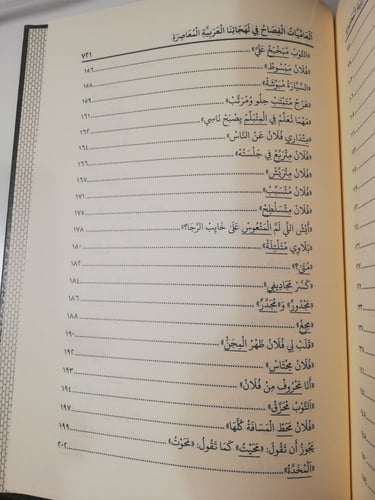 اَلْعَامِّيَّاتُ الْفِصَاحُ فِي لَهَجَاتِنَا الْعَرَبِيَّةِ الْمُعَاصِرَةِ
٧٢١
«الثَّوْبُ مْبَحْبَحْ عَلَيَّ»
«فُلَانْ مَبْسُوطْ» ١٥٦
«السَّيَّارَةُ مَبْيُوتَةْ» ١٥٨
١٥٩
«مَهْمَا تَعَلَّمْ فِي الْمِتْبَلِّمْ يِصْبَحْ نَاسِي» ١٦١
«مِتْدَارِي فُلَانْ عَنِ النَّاسْ» ١٦٢
«فُلَانْ مِتْرَبِّعْ فِي جَلْسَتَهْ» ١٦٤
«فُلَانْ مِتْرَيِّشْ» ١٦٦
«فُلَانْ مِتْسَبِّبْ» ١٧١
«فُلَانْ مِتْسَلْطِحْ» ١٧٥
«أَيْشِ اللِّي لَمِّ الْمَتْعُوسْ عَلَى خَايِبْ الرَّجَا؟» ١٧٨
«بَلَاوِي مْتَلْتِلَةْ» ١٨٠
«مَتَى؟» ١٨٢
«كَسَّرْ مَجَادِيفِي» ١٨٤
«مَجْدُورْ» وَ«مْجَدَّرْ» ١٨٦
١٨٨
«قَلَبْ لِي فُلَانْ ظَهْرَ الْمِجَنِّ» ١٩٠
«فُلَانْ مِحْتَاسْ» ١٩٢
«أَنَا مَحْرُوقْ مِنْ فُلَانْ» ١٩٣
«اَلثَّوْبْ مْحَزَّقْ» ١٩٤
«فُلَانْ مَحَطِ الْمَسَافَةْ كُلَّهَا» ١٩٧
يَجُوزُ أَنْ تَقُولَ: «مَحَيْتُ» كَمَا تَقُولُ: «مَحَوْتُ» ١٩٩
«اَلْمِخَدَّةْ» ٢٠٢